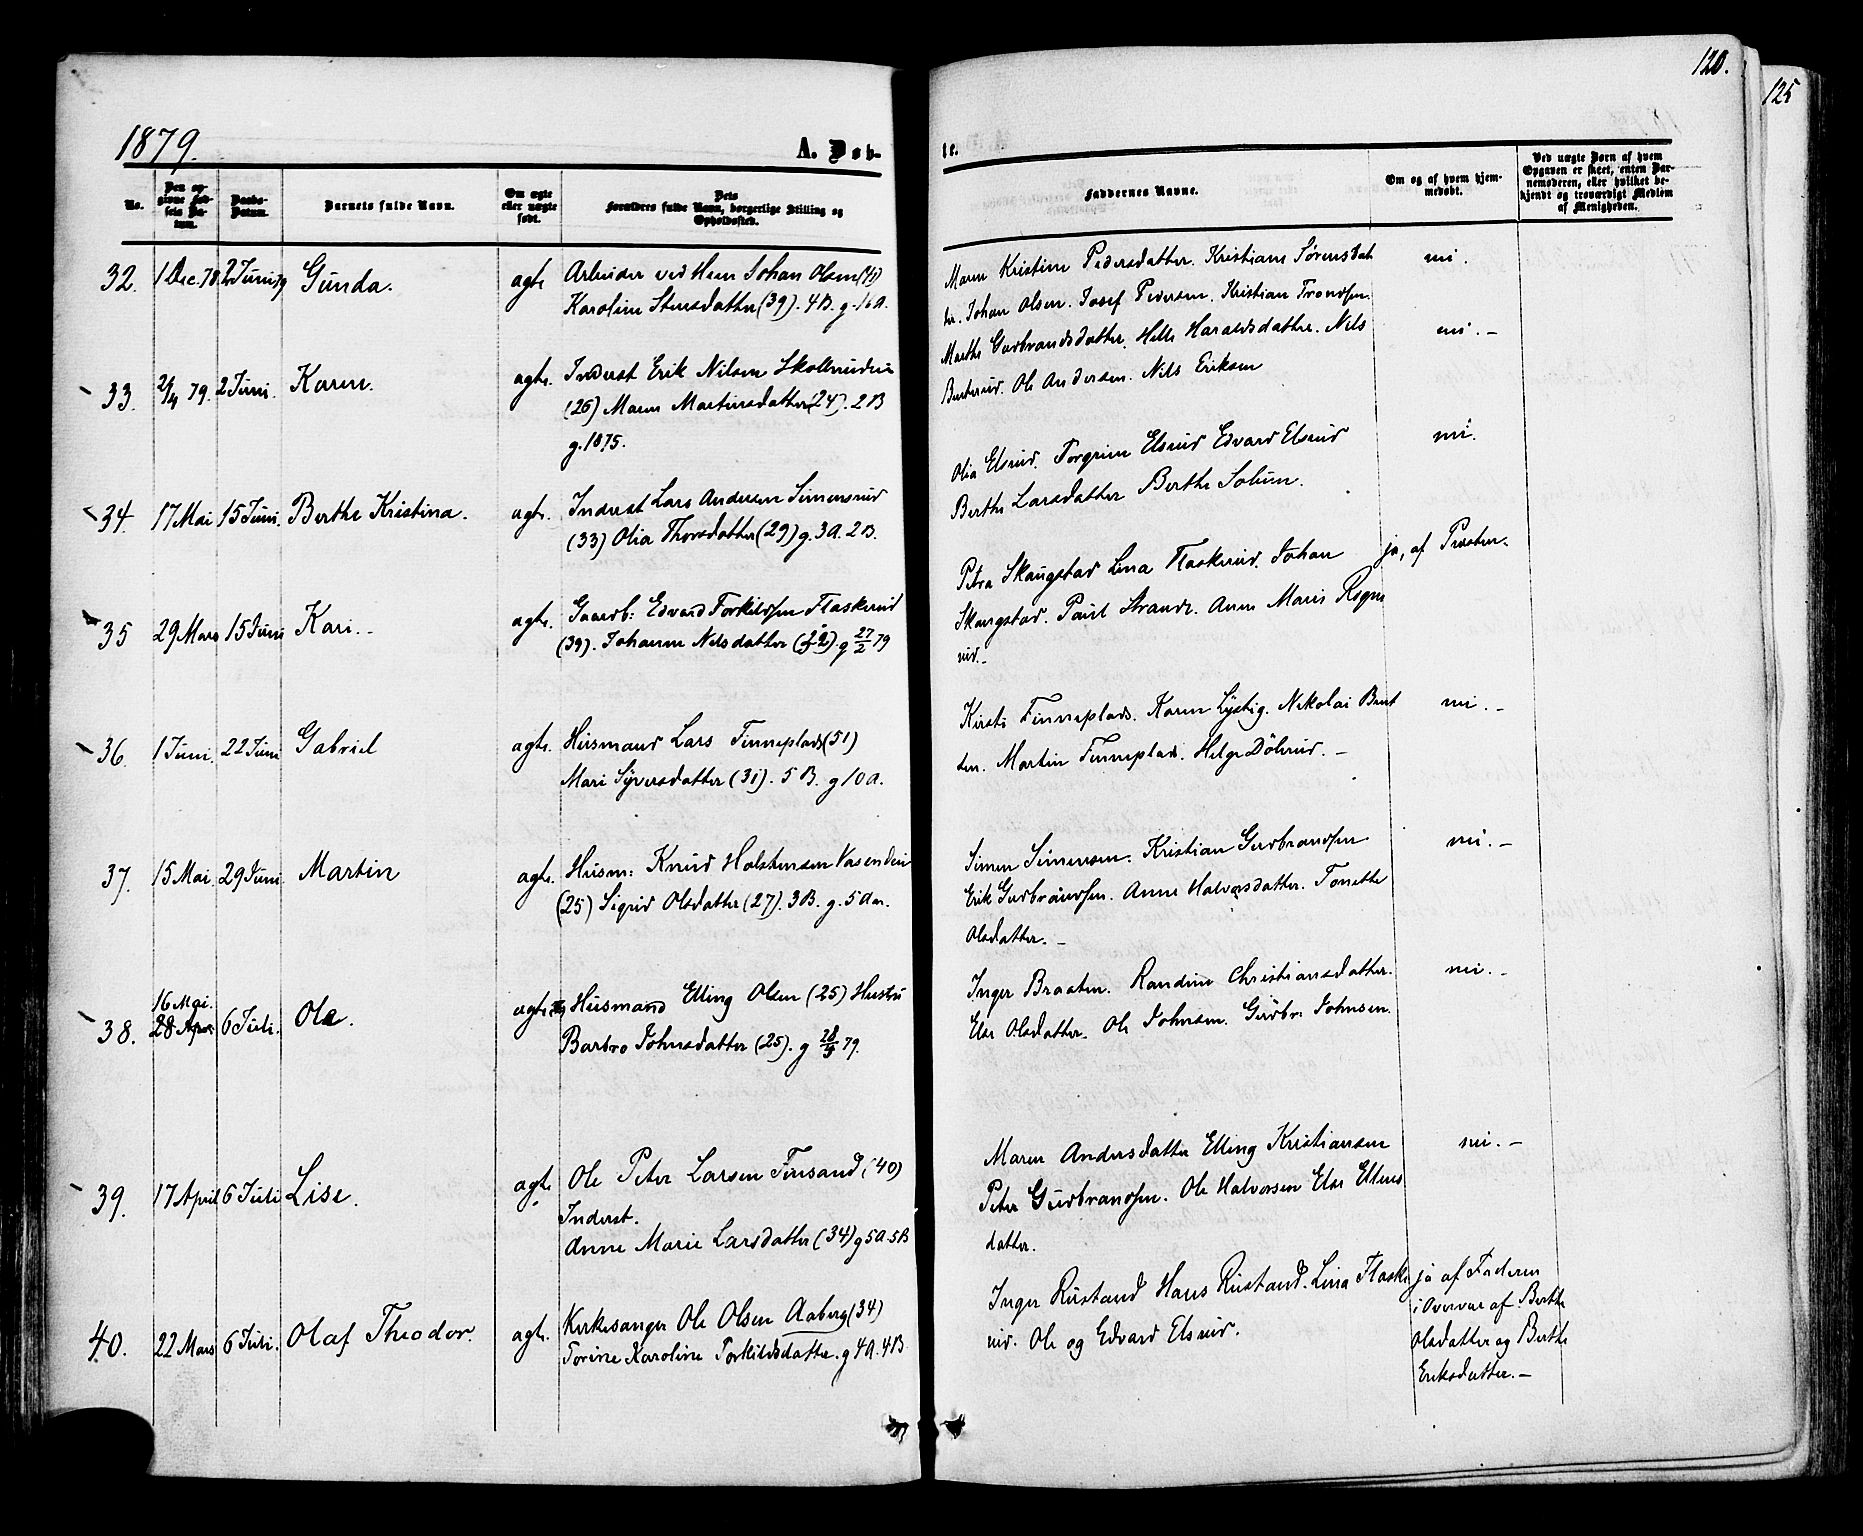 120.
125
1879.
A. Døb-
te.
No.
Den opgivne Fødsels Datum.
Daabs-Datum.
Barnets fulde Navn.
Om ægte eller uægte født.
Dets Forældres fulde Navn, borgerlige Stilling og Opholdssted.
Faddernes Navne.
Om og af hvem hjemmedøbt.
Ved uægte Børn af hvem Opgaven er skeet, enten Barnemoderen, eller hvilket bekjendt og troværdigt Medlem af Menigheden.
32. 1 Dec. 78. 2 Juni 79 Gunda. ægte Arbeider ved Heen Johan Olsen
Karoline Stensdatter (39). 4B. g. 16 A.
Maren Kristine Pedersdatter. Kristiane Sørensdat
ter. Johan Olsen. Josef Pedersen. Kristian Trondsen.
nei.
33. 2/4 79. 2 Juni. Karen. ægte. Inderst Erik Nilsen Skollerudeie
(26) Maren Martinsdatter (24). 2B
g. 1875.
Marthe Gudbrandsdatter. Helle Haraldsdatter. Nils
Buterud. Ole Andersen. Nils Eriksen
nei. -
34. 17 Mai 15 Juni. Berthe Kristina. ægte. Inderst Lars Andersen Simensrud
(33) Olia Thorsdatter (29) g. 3A. 2B.
Olia Elsrud. Torgrim Elsrud Edvard Elsrud
Berthe Larsdatter Berthe Solum.
nei.
35 29 Mars 15 Juni Kari. - ægte. Gaardb: Edvard Torkildsen Flaskerud
(39). Johanne Nilsdatter g 27/2 79
Petra Skaugstad Lina Flaskerud. Johan
Skaugstad. Paul Strande. Anne Marie Rogne
rud. -
ja, af Præsten.
36. 1 Juni. 22 Juni Gabriel ægte. Husmand Lars Finneplads (51)
Mari Syversdatter (31). 5 B. g 10 A.
Kirsti Finneplads. Karen Lystig. Nikolai Bent
sen. Martin Finneplads. Helge Dølerud. -
nei. -
37. 15 Mai. 29 Juni. Martin ægte. Husm: Knud Holstensen Vasendeie
(25) Sigrid Olsdatter (27). 3B. g. 5 Aar.
Simen Simensen. Kristian Gudbrandsen
Erik Gudbrandsen. Anne Halvorsdatter. Tonette
Olsdatter. -
nei. -
38. 16 Mai. 28 Apr. 6 Juli. Ole. ægte Husmand Elling Olsen (25) Hustru
Barbro Johnsdatter (25). g 28/5 79.
Inger Braaten. Randine Christiansdatter.
Else Olsdatter. Ole Johnsen. Gudbr. Johnsen.
nei. -
39. 17 April 6 Juli Lise. ægte Ole Peter Larsen Finsand (40)
Inderst.
Anne Marie Larsdatter (34) g 5A. 5B
Maren Andersdatter Elling Kristiansen
Peter Gudbrandsen. Ole Halvorsen Else Ellens
datter.
nei. -
40. 22 Mars 6 Juli. Olaf Theodor. ægte. Kirkesanger Ole Olsen Aaberg (34)
Torine Karoline Torkildsdatter. g 4A. 4B
Inger Rustand Hans Rustand. Lina Flaske
rud. Ole og Edvard Elsrud.
ja af Faderen
i Overvær af Berthe
Olsdatter og Berthe
Eriksdatter. -